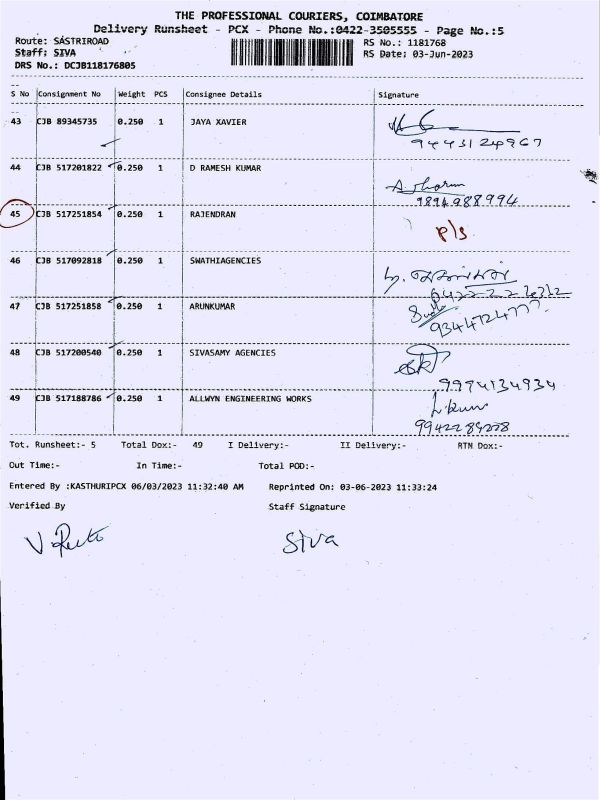 THE PROFESSIONAL COURIERS, COIMBATORE
Delivery Runsheet - PCX - Phone No.:0422-3505555 - Page No.:5
Route: SASTRIROAD RS No.: 1181768
Staff: SIVA RS Date: 03-Jun-2023
DRS No.: DCJB118176805
S No Consignment No Weight PCS Consignee Details Signature
43 CJB 89345735 0.250 1 JAYA XAVIER
9443124967
44 CJB 517201822 0.250 1 D RAMESH KUMAR
9894988994
45 CJB 517251854 0.250 1 RAJENDRAN
P/S
46 CJB 517092818 0.250 1 SWATHIAGENCIES
47 CJB 517251858 0.250 1 ARUNKUMAR
9344724777
48 CJB 517200540 0.250 1 SIVASAMY AGENCIES
9994134934
49 CJB 517188786 0.250 1 ALLWYN ENGINEERING WORKS
Tot. Runsheet:- 5 Total Dox:- 49 I Delivery:- II Delivery:- RTN Dox:-
Out Time:- In Time:- Total POD:-
Entered By :KASTHURIPCX 06/03/2023 11:32:40 AM Reprinted On: 03-06-2023 11:33:24
Verified By Staff Signature
Siva